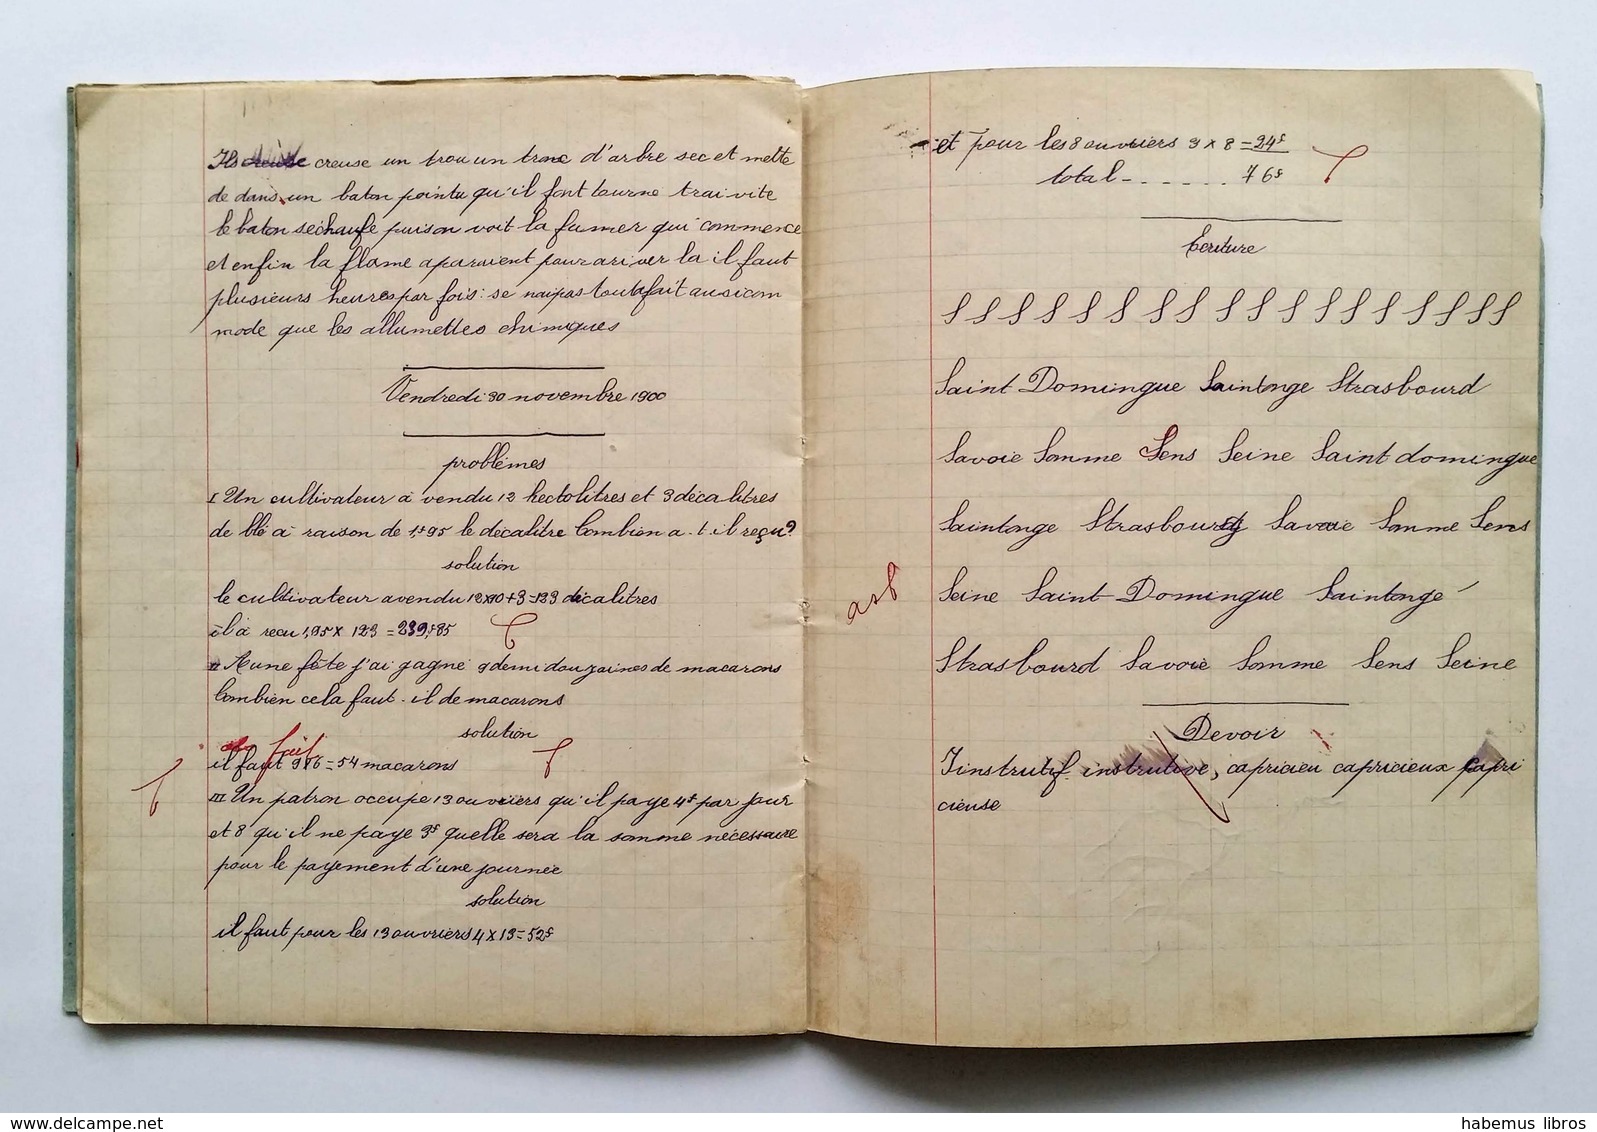 Ils creuse un trou un tronc d'arbre sec et mette
de dans un baton pointu qu'il font tourne trai vite
le baton séchaufe puison voit la fumer qui commence
et enfin la flame aparaient pour ariver la il faut
plusieurs heures par fois : se naipas toutafait ausicom
mode que les allumettes chimiques
Vendredi 30 novembre 1900
problèmes
I Un cultivateur à vendu 12 hectolitres et 3 décalitres
de blé à raison de 1f95 le décalitre Combien a-t-il reçu?
solution
le cultivateur avendu 12x10+3=123 décalitres
il à reçu 1,95 x 123 = 239,f85
II A une fête j'ai gagné 9 demi douzaines de macarons
Combien cela faut-il de macarons
solution
fait
il faut 9x6=54 macarons
III Un patron occupe 13 ouvriers qu'il paye 4f par jour
et 8 qu'il ne paye 3f quelle sera la somme nécessaire
pour le payement d'une journée
solution
il faut pour les 13 ouvriers 4 x 13 = 52f
et pour les 8 ouvriers 3 x 8 = 24f
total - - - - - - 76f
Ecriture
S S S S S S S S S S S S S S S S S
Saint Domingue Saintonge Strasbourd
Savoie Somme Sens Seine Saint domingue
Saintonge Strasbourd Savoie Somme Sens
asf
Seine Saint-Domingue Saintonge
Strasbourd Savoie Somme Sens Seine
Devoir
Iinstrutif instrutive, capricieu capricieux capri
cieuse
habemus libros